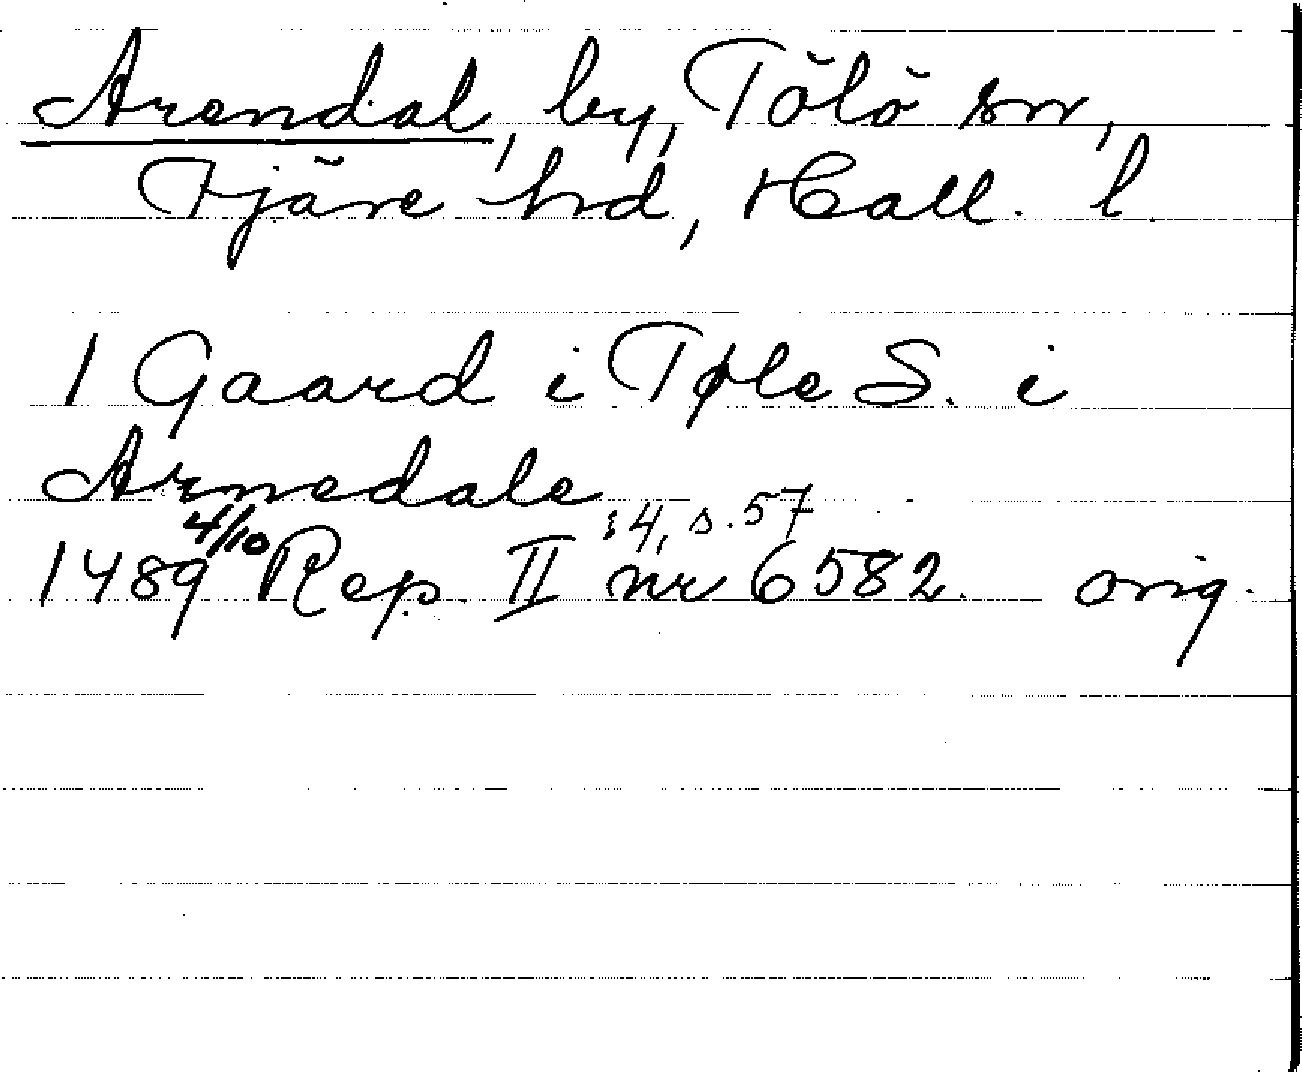 Arendal, by, Tölö sn,
Fjäre hd, Hall. l.
1 Gaard i Tøle S. i
Arnedale
4/10 :4, s. 57
1489 Rep. II nr 6582. orig.